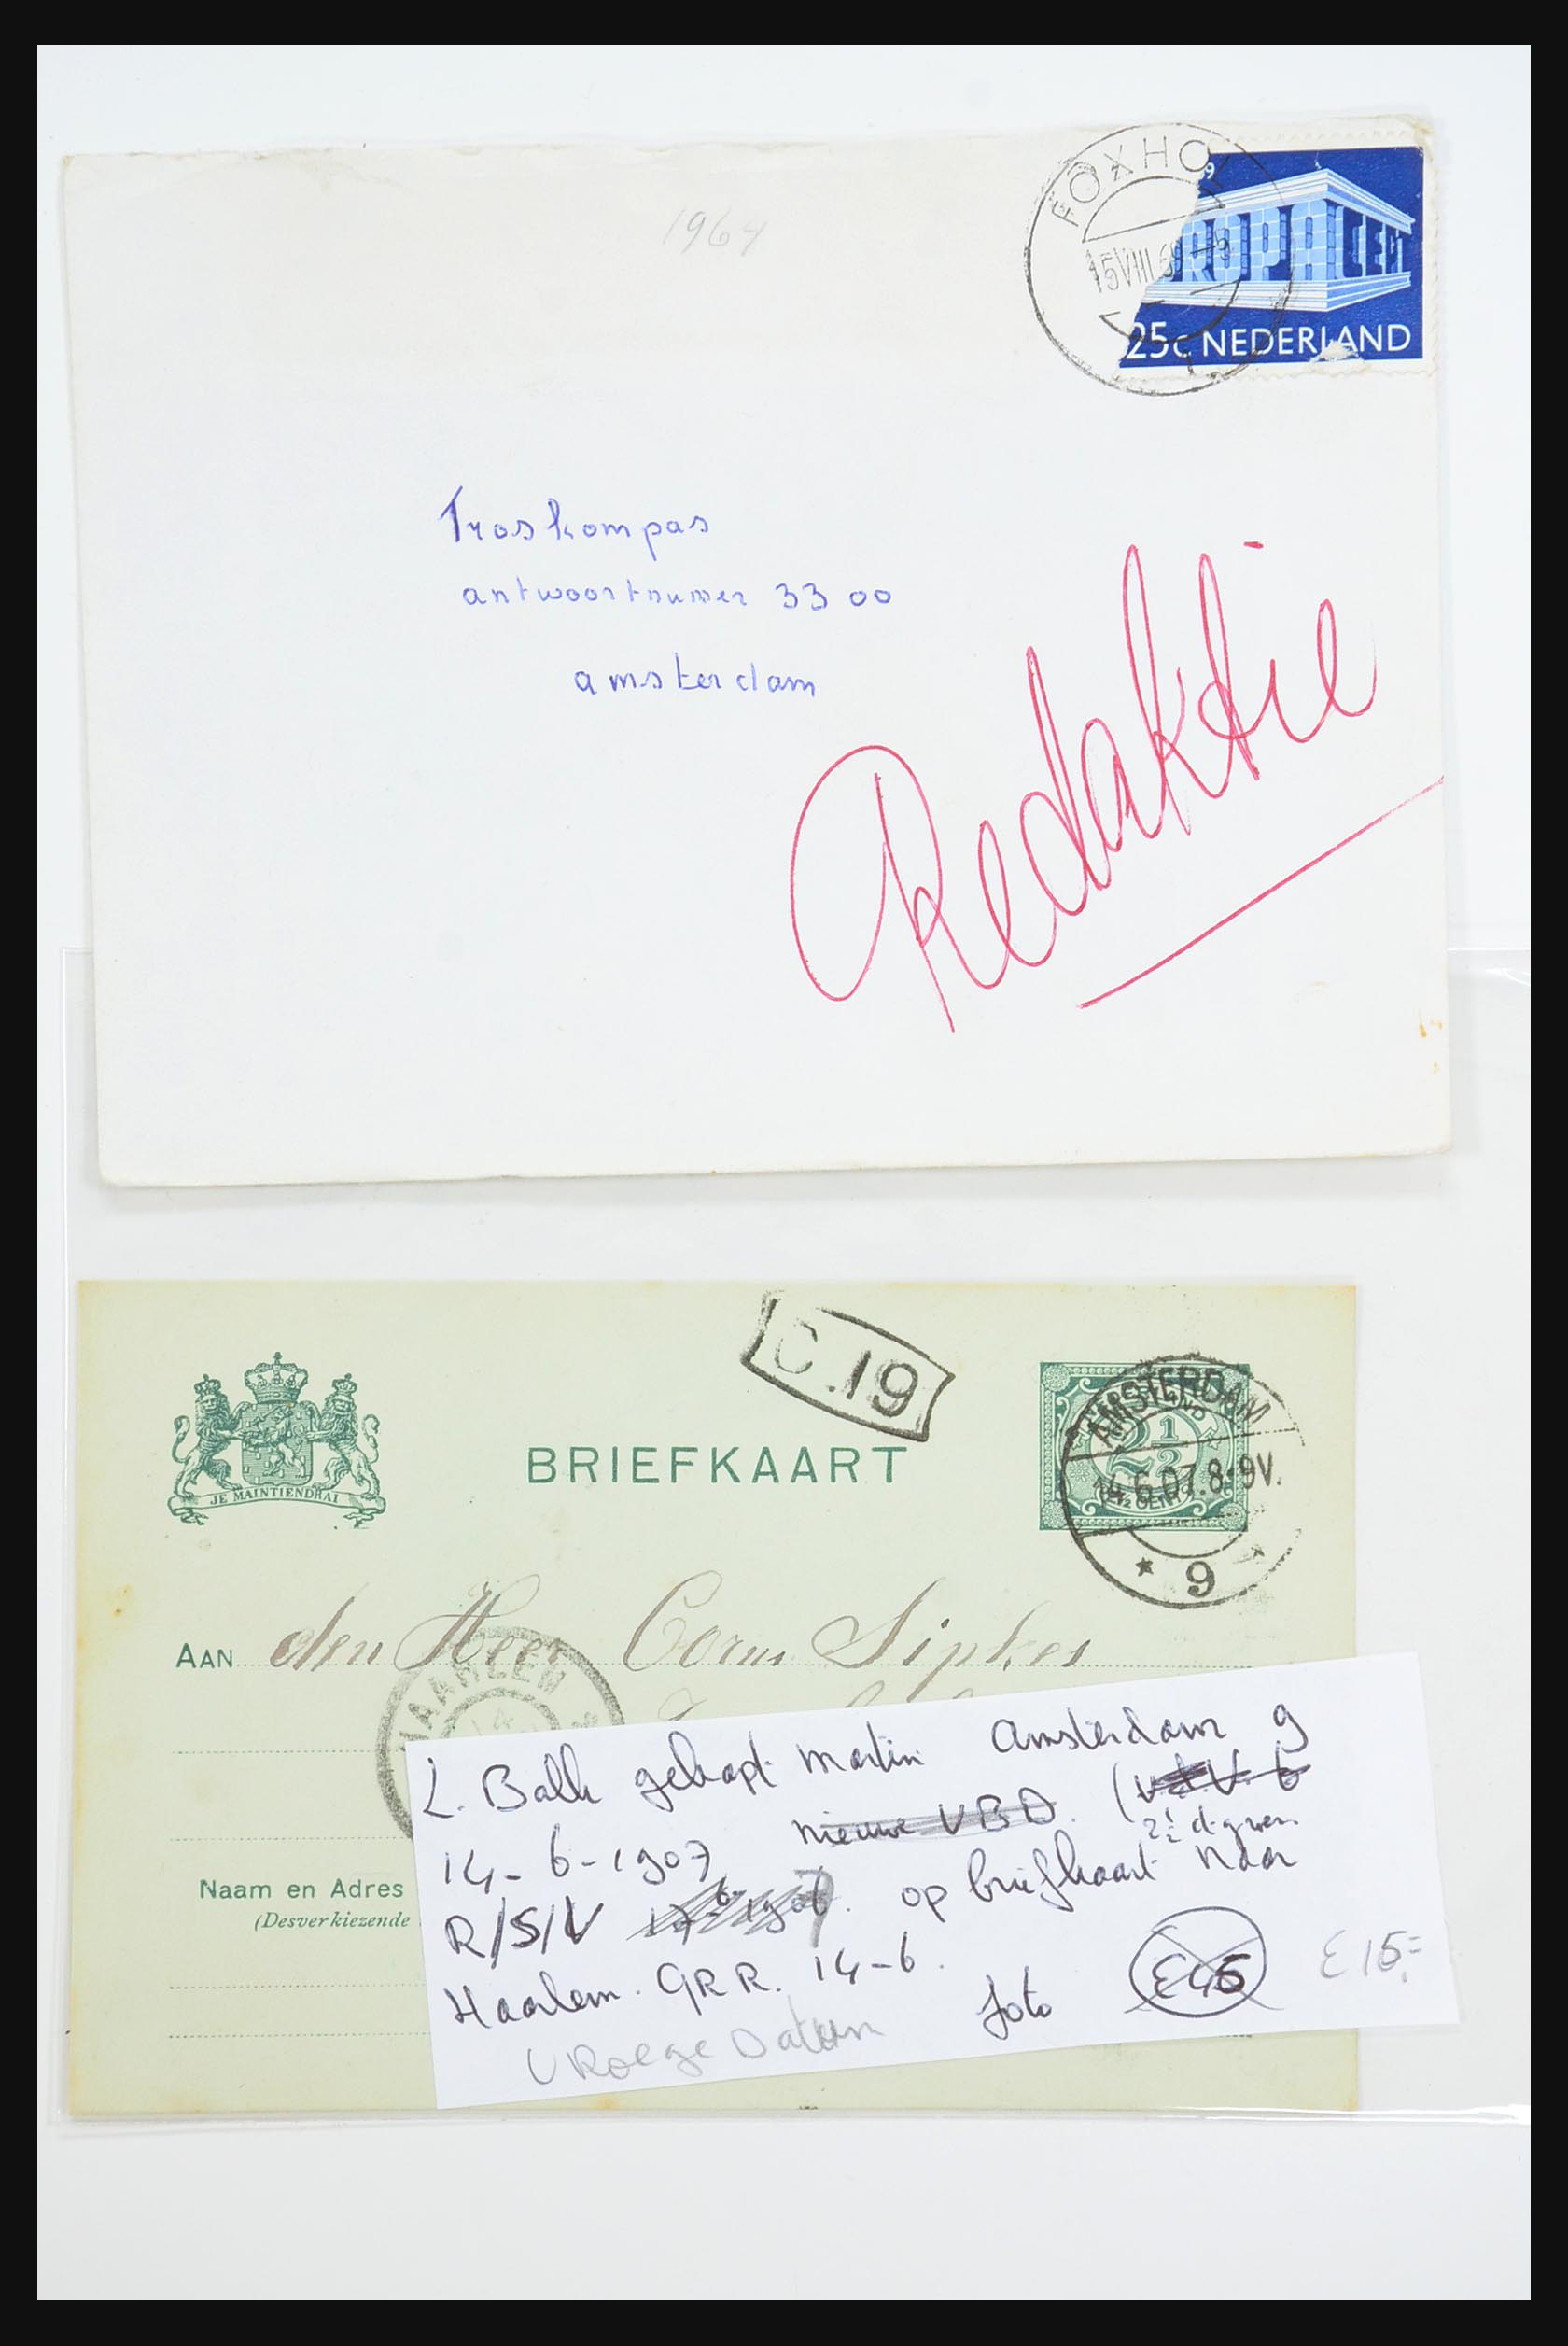 1964
FOXHO
15 VIII 69 -
ROPA CEPT
25c NEDERLAND
Troskompas
antwoortnumer 3300
amsterdam
Redaktie
C.19
BRIEFKAART
JE MAINTIENDRAI
2½
AMSTERDAM
14.6.07.8-9V.
* 9 *
AAN den Heer Corns Sipkes
HAARLEM
14
Naam en Adres
(Desverkiezende
L. Balk gekapt Martin Amsterdam 9
14-6-1907 nieuwe VBD. (
2½ ct. groen
R/S/V op briefkaart naar
Haarlem. GRR. 14-6.
foto €45 €15,=
VRoege Datum